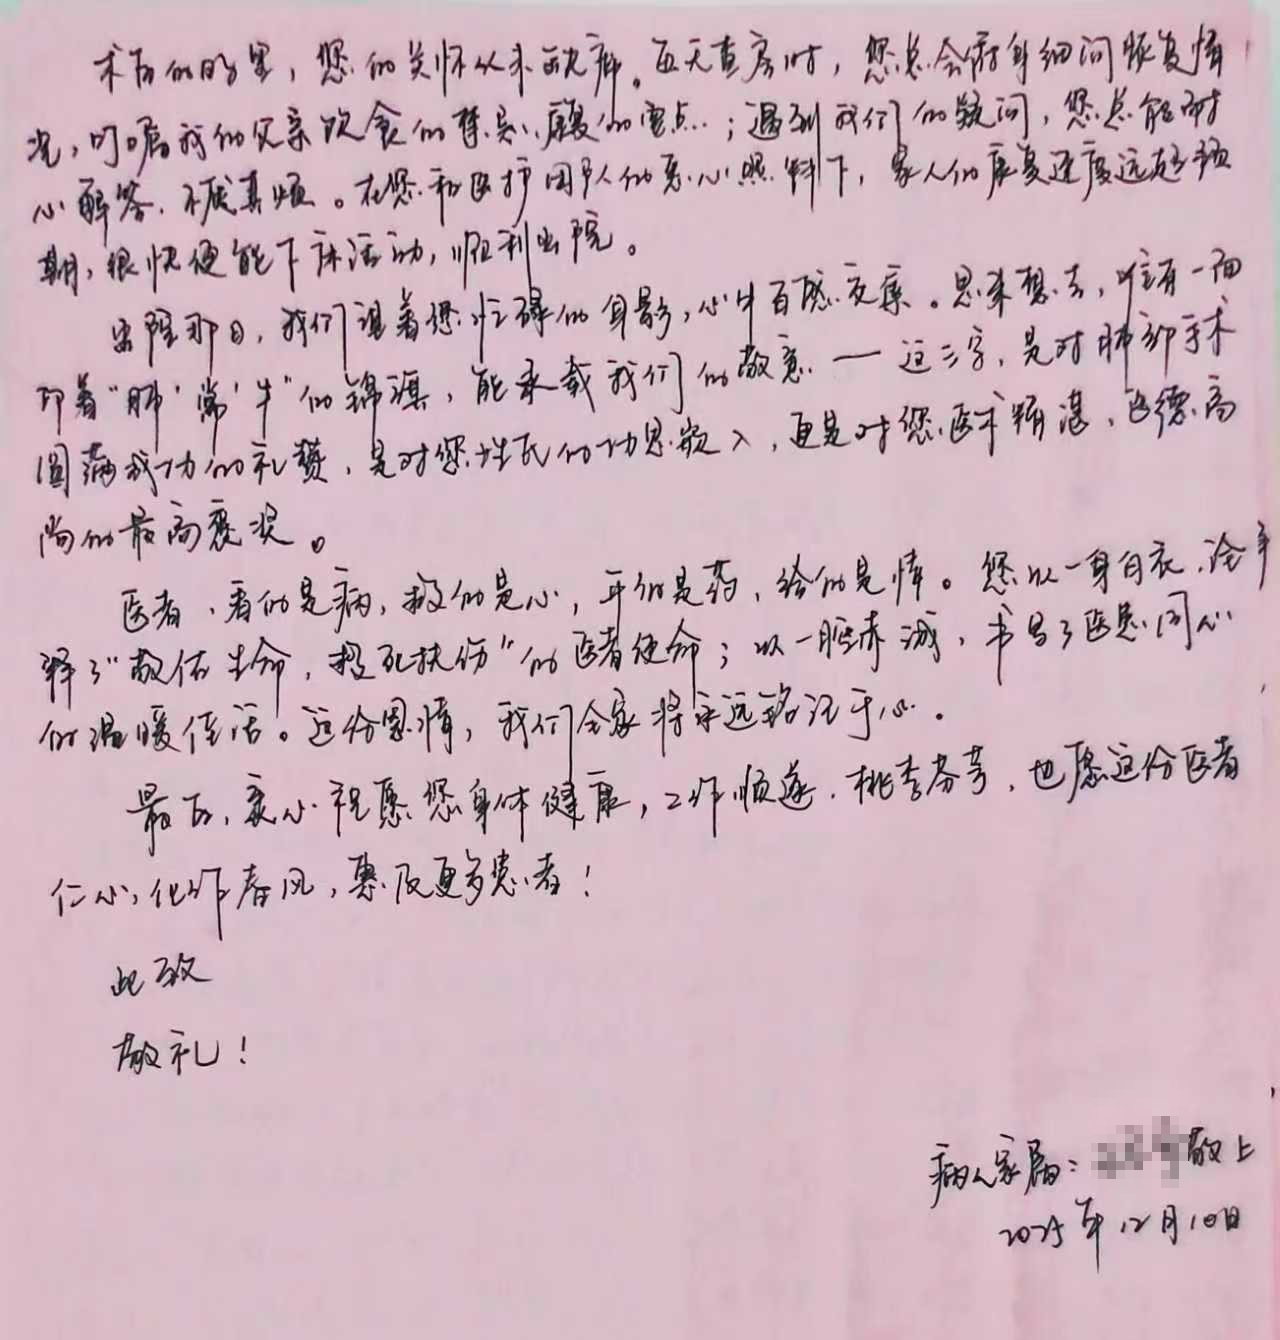 术后的日子里，您的关怀从未缺席。每天查房时，您总会俯身细问恢复情
况，叮嘱我的父亲饮食的禁忌、康复的要点…；遇到我们的疑问，您总能耐
心解答、不厌其烦。在您和医护团队的悉心照料下，家人的康复速度远超预
期，很快便能下床活动，顺利出院。
出院那日，我们望着您忙碌的身影，心中百感交集。思来想去，唯有一面
印着"肺'常'牛"的锦旗，能承载我们的敬意——这三字，是对肺部手术
圆满成功的礼赞，是对您姓氏的巧思嵌入，更是对您医术精湛、医德高
尚的最高褒奖。
医者，看的是病，救的是心，开的是药，给的是情。您以一身白衣，诠
释了"敬佑生命，救死扶伤"的医者使命；以一腔赤诚，书写了医患同心
的温暖佳话。这份恩情，我们全家将永远铭记于心。
最后，衷心祝愿您身体健康，工作顺遂，桃李芬芳，也愿这份医者
仁心，化作春风，惠及更多患者！
此致
敬礼！
病人家属： 敬上
2025年12月10日